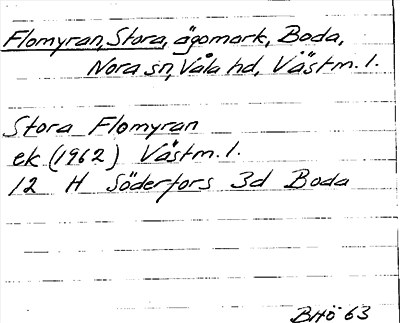 Flomyran, Stora, ägomark, Boda,
Nora sn, Våla hd, Västm. l.
Stora Flomyran
ek (1962) Västm. l.
12 H Söderfors 3d Boda
BHö 63